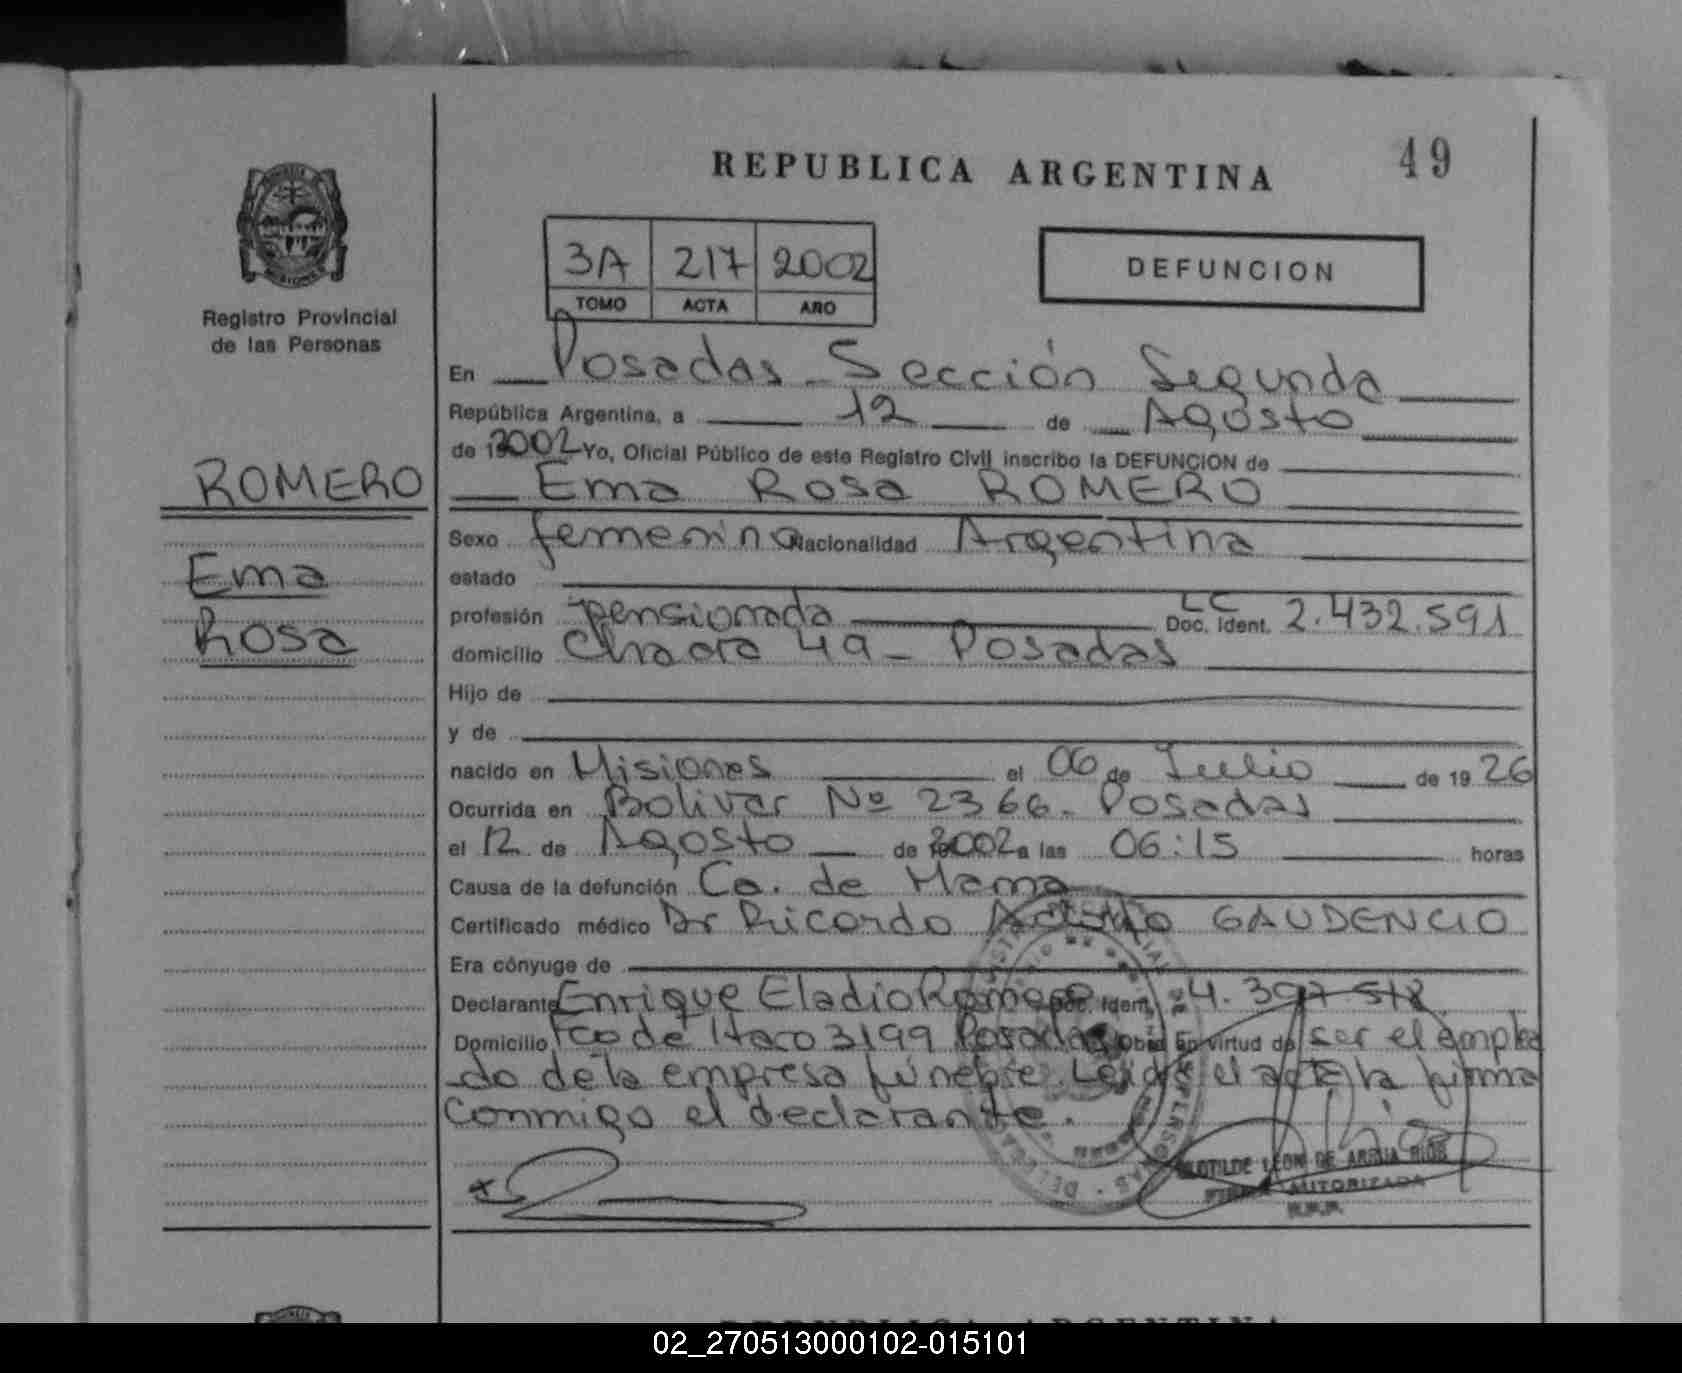 49
REPUBLICA ARGENTINA
3A 217 2002
TOMO ACTA AÑO
DEFUNCION
Registro Provincial
de las Personas
ROMERO
Ema
Rosa
En Posadas - Sección Segunda
República Argentina, a 12 de Agosto
de 2002 Yo, Oficial Público de este Registro Civil inscribo la DEFUNCION de
Ema Rosa ROMERO
Sexo femenino Nacionalidad Argentina
estado
profesión pensionada LC Doc. Ident. 2.432.591
domicilio Chacra 49 - Posadas
Hijo de
y de
nacido en Misiones el 06 de Julio de 1926
Ocurrida en Bolivar Nº 2366 - Posadas
el 12 de Agosto de 2002 a las 06:15 horas
Causa de la defunción Ca. de Mama
Certificado médico Dr Ricardo GAUDENCIO
Era cónyuge de
Declarante Enrique Eladio Romero Doc. Ident.
Domicilio Fco de Haro 3199 Posadas Obra En virtud de ser el emplea
do de la empresa fúnebre. Leida el acta la firma
conmigo el declarante.
CLOTILDE LEON DE ARRUA RIOS
FIRMA AUTORIZADA
R.P.P.
REPUBLICA ARGENTINA
02_270513000102-015101